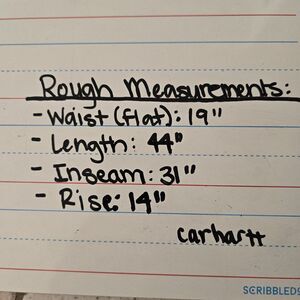 Rough Measurements:
- Waist (flat): 19"
- Length: 44"
- Inseam: 31"
- Rise: 14"
carhartt
SCRIBBLED